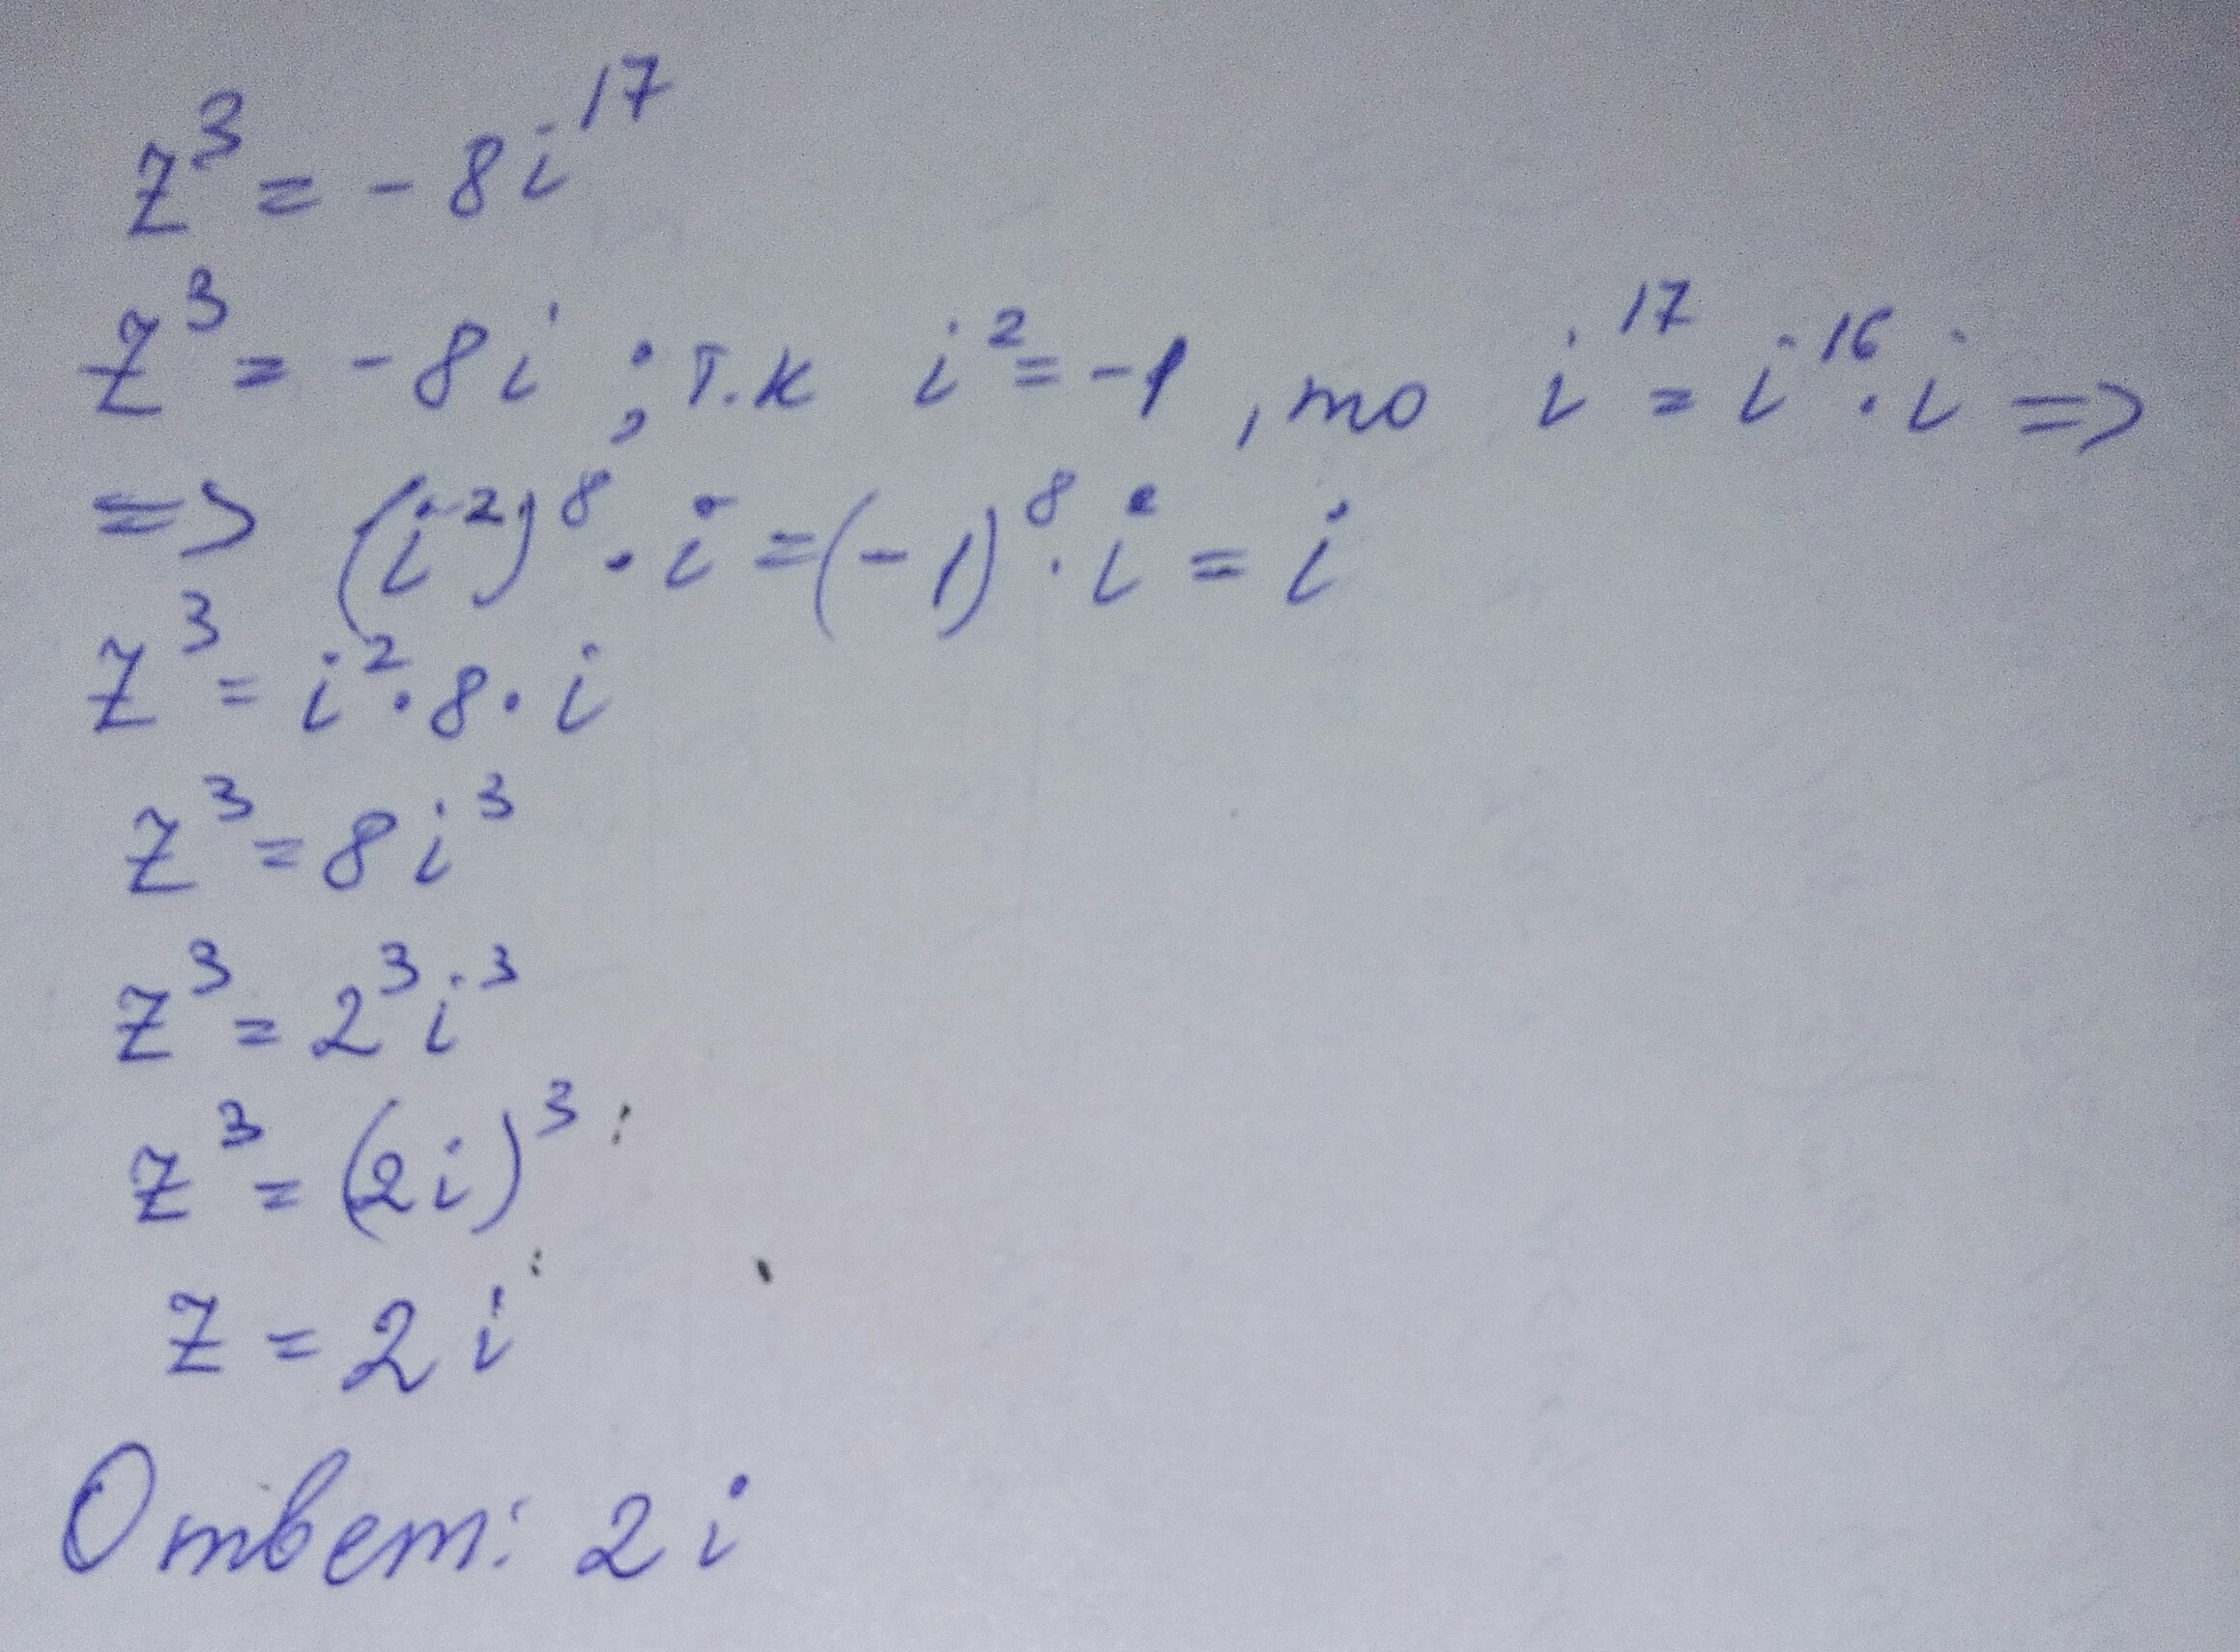 z³ = -8i¹⁷
z³ = -8i ; т.к i² = -1 , то i¹⁷ = i¹⁶ · i =>
=> (i²)⁸ · i = (-1)⁸ · i = i
z³ = i² · 8 · i
z³ = 8i³
z³ = 2³i³
z³ = (2i)³
z = 2i
Ответ: 2i